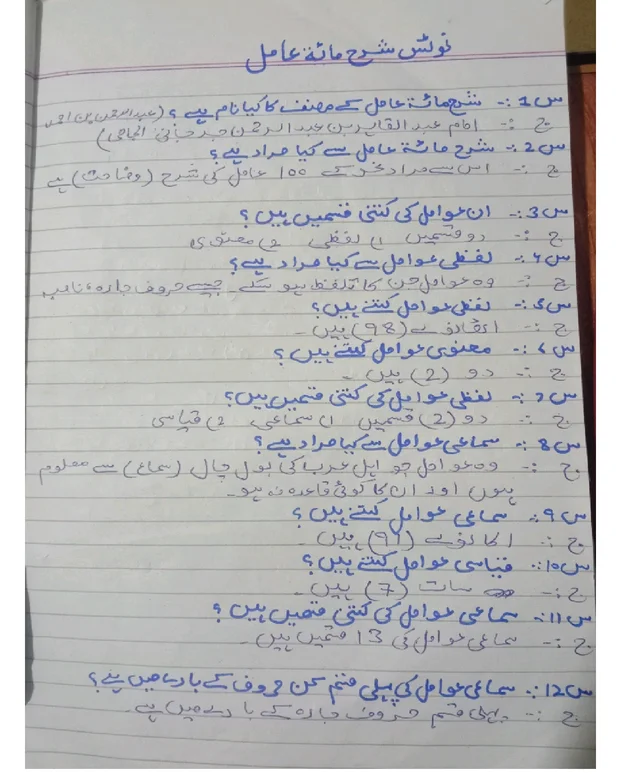 نوٹس شرح مائۃ عامل
س1:- شرح مائۃ عامل کے مصنف کا کیا نام ہے؟ (عبدالرحمن بن احمد
ج :- امام عبد القاہر بن عبد الرحمٰن جرجانی الجامی)
س2:- شرح مائۃ عامل سے کیا مراد ہے؟
ج :- اس سے مراد نحو کے 100 عامل کی شرح (وضاحت) ہے
س3:- ان عوامل کی کتنی قسمیں ہیں؟
ج :- دو قسمیں 1) لفظی 2) معنوی
س4:- لفظی عوامل سے کیا مراد ہے؟
ج :- وہ عوامل جن کا تلفظ ہو سکے۔ جیسے حروف جارہ، ناصب
س5:- لفظی عوامل کتنے ہیں؟
ج :- اٹھانوے (98) ہیں۔
س6:- معنوی عوامل کتنے ہیں؟
ج :- دو (2) ہیں۔
س7:- لفظی عوامل کی کتنی قسمیں ہیں؟
ج :- دو (2) قسمیں 1) سماعی 2) قیاسی
س8:- سماعی عوامل سے کیا مراد ہے؟
ج :- وہ عوامل جو اہل عرب کی بول چال (سماع) سے معلوم
ہوں اور ان کا کوئی قاعدہ نہ ہو۔
س9:- سماعی عوامل کتنے ہیں؟
ج :- اکانوے (91) ہیں۔
س10:- قیاسی عوامل کتنے ہیں؟
ج :- سات (7) ہیں۔
س11:- سماعی عوامل کی کتنی قسمیں ہیں؟
ج :- سماعی عوامل کی 13 قسمیں ہیں۔
س12:- سماعی عوامل کی پہلی قسم کن حروف کے بارے میں ہے؟
ج :- پہلی قسم حروف جارہ کے بارے میں ہے۔